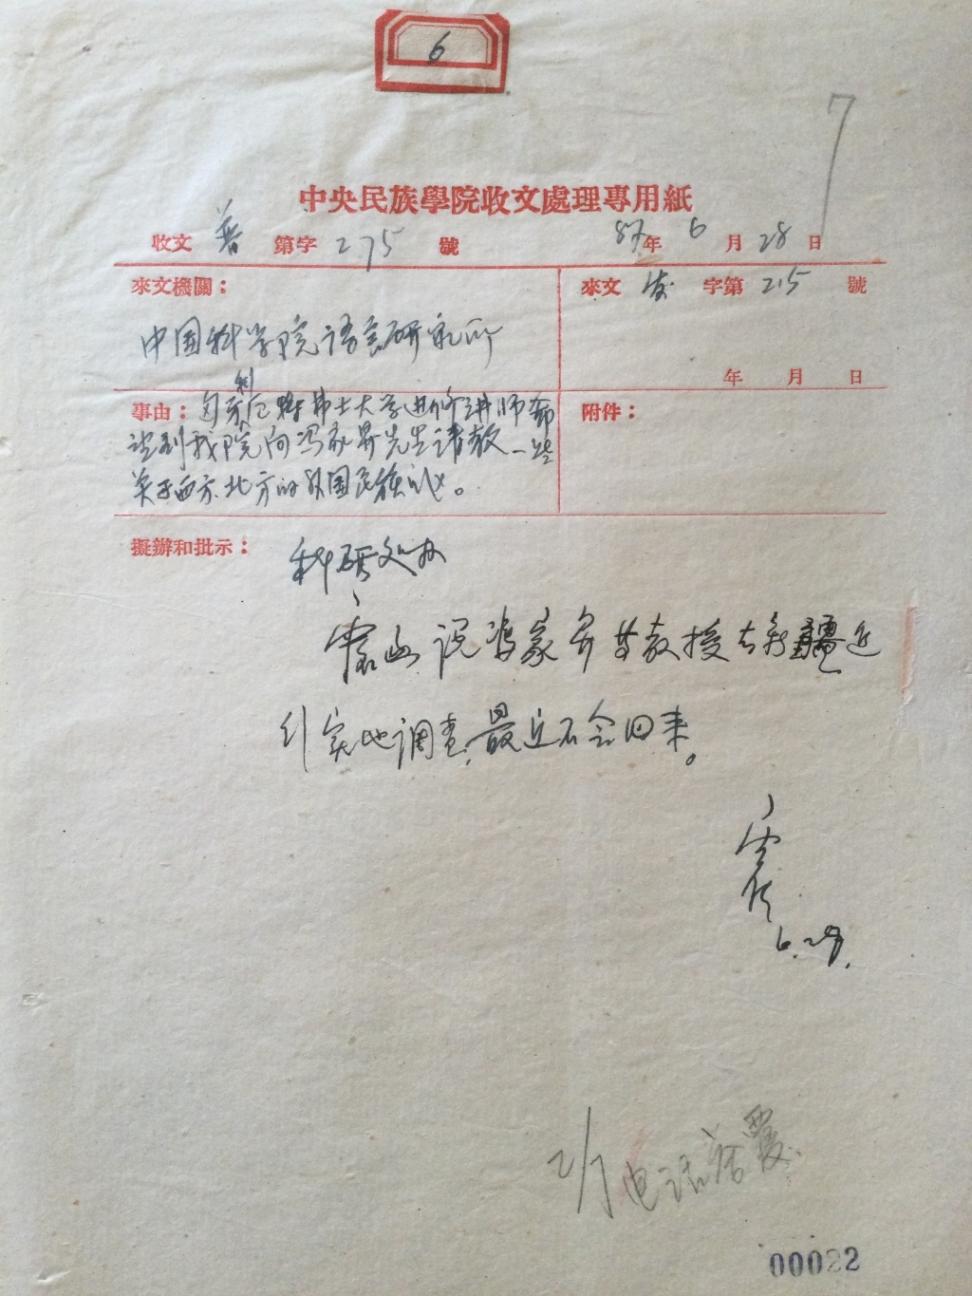 6
7
中央民族學院收文處理專用紙
收文 普 第字 275 號 57年 6 月 28 日
來文機關: 來文 字第 215 號
中国科学院语言研究所
年 月 日
事由: 匈牙利 大学 讲师 附件:
到我院向冯家昇先生请教一些
关于西方北方的我国民族问题。
擬辦和批示: 科研处办
说冯家昇等教授去新疆进
行实地调查,最近不会回来。
6.29.
2/7电话答覆.
00022